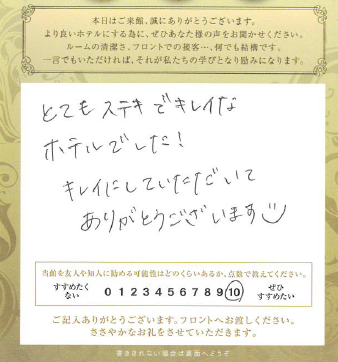 本日はご来館、誠にありがとうございます。
より良いホテルにする為に、ぜひあなた様の声をお聞かせください。
ルームの清潔さ、フロントでの接客…、何でも結構です。
一言でもいただければ、それが私たちの学びとなり励みになります。
とてもステキでキレイな
ホテルでした!
キレイにしていただいて
ありがとうございます
当館を友人や知人に勧める可能性はどのくらいあるか、点数で教えてください。
すすめたくない 0 1 2 3 4 5 6 7 8 9 10 ぜひすすめたい
ご記入ありがとうございます。フロントへお渡しください。
ささやかなお礼をさせていただきます。
書ききれない場合は裏面へどうぞ